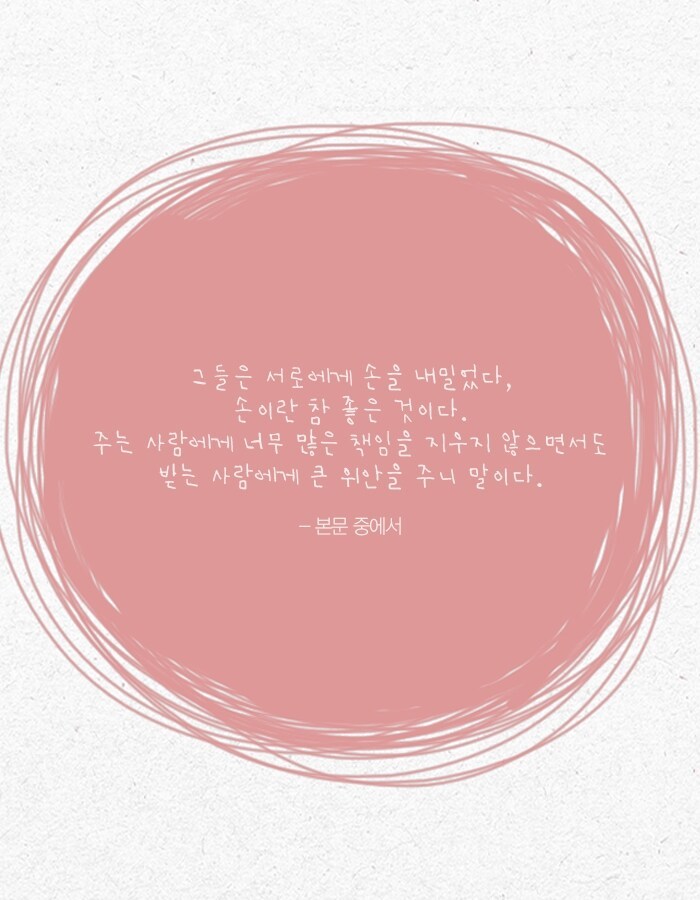 그들은 서로에게 손을 내밀었다,
손이란 참 좋은 것이다.
주는 사람에게 너무 많은 책임을 지우지 않으면서도
받는 사람에게 큰 위안을 주니 말이다.
– 본문 중에서